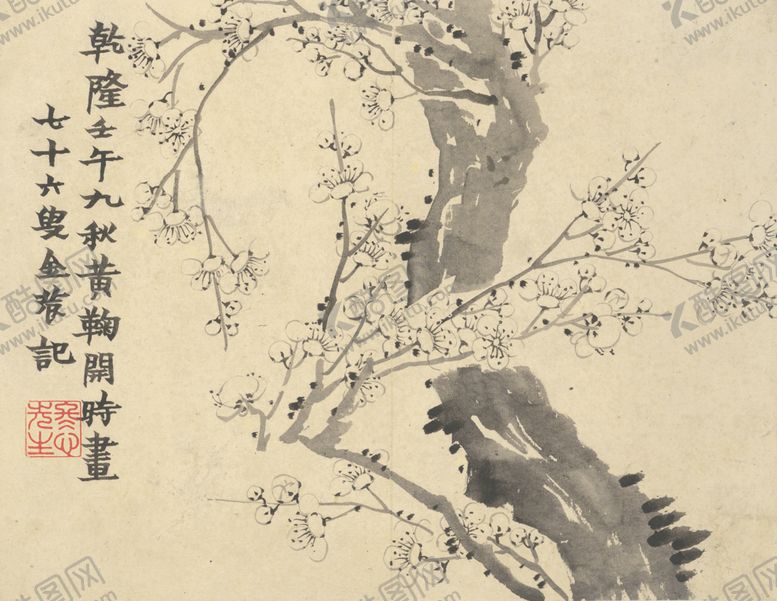 乾隆壬午九秋黄鞠開時畫
七十六叟金農記
酷图网
www.ikutu.com